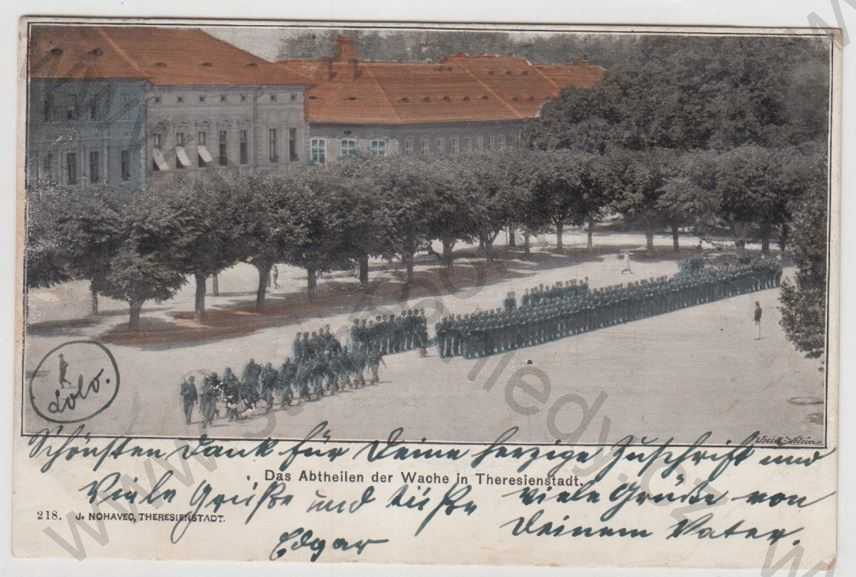 Lolo.
Schönsten Dank für Deine herzige Zuschrift und
Das Abtheilen der Wache in Theresienstadt.
Viele Grüße und Küße
viele Grüße von
218. J. NOHAVEC, THERESIENSTADT.
Deinem Vater.
Edgar
www.antikvariat-vltavske-pohledy.cz